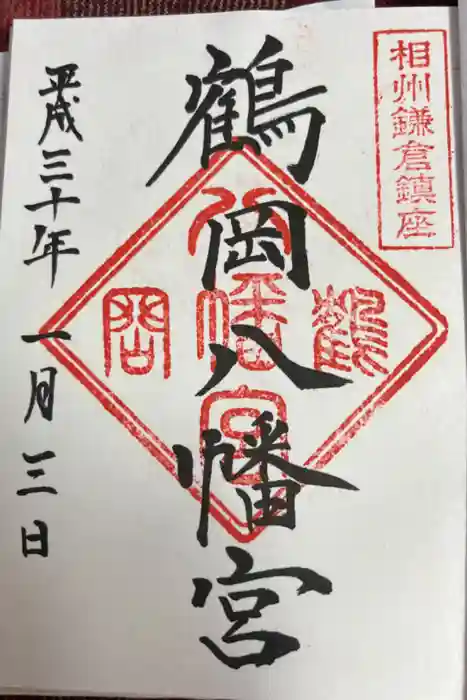 相州鎌倉鎮座
鶴岡八幡宮
鶴
八幡宮
岡
平成三十年一月三日